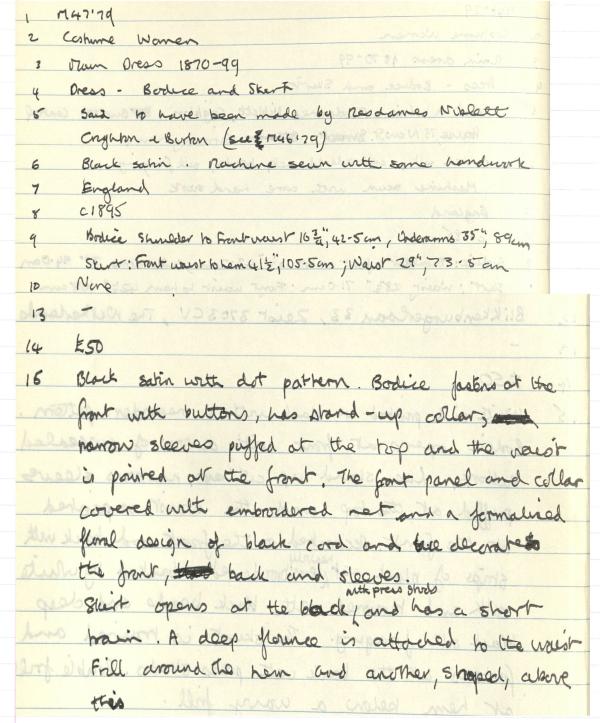 1 M47'79
2 Costume Women
3 Main Dress 1870-99
4 Dress - Bodice and Skirt
5 Said to have been made by Mesdames Niblett
Crighton & Burton (see M46'79)
6 Black satin. Machine sewn with some handwork
7 England
8 C1895
9 Bodice Shoulder to Front waist 16¾", 42.5cm, Underarms 35", 89cm
Skirt: Front waist to hem 41½", 105.5cm; Waist 29", 73.5cm
10 None
13 -
14 £50
15 Black satin with dot pattern. Bodice fastens at the
front with buttons, has stand-up collar,
narrow sleeves puffed at the top and the waist
is pointed at the front. The front panel and collar
covered with embroidered net and a formalised
floral design of black cord and decorates
the front, back and sleeves.
Skirt opens at the back with press studs and has a short
train. A deep flounce is attached to the waist
Frill around the hem and another, shaped, above
this